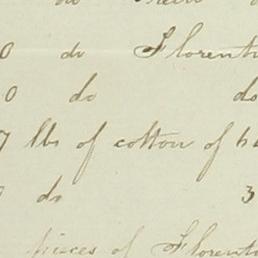 do
0 do Florentin
0 do do
7 lbs of cotton of
do 3
pieces of Florent